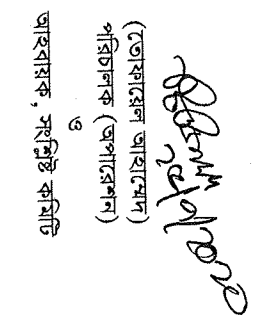 (তোফায়েল আহাম্মেদ)
পরিচালক (অপারেশন)
ও
আহবায়ক, সংশ্লিষ্ট কমিটি